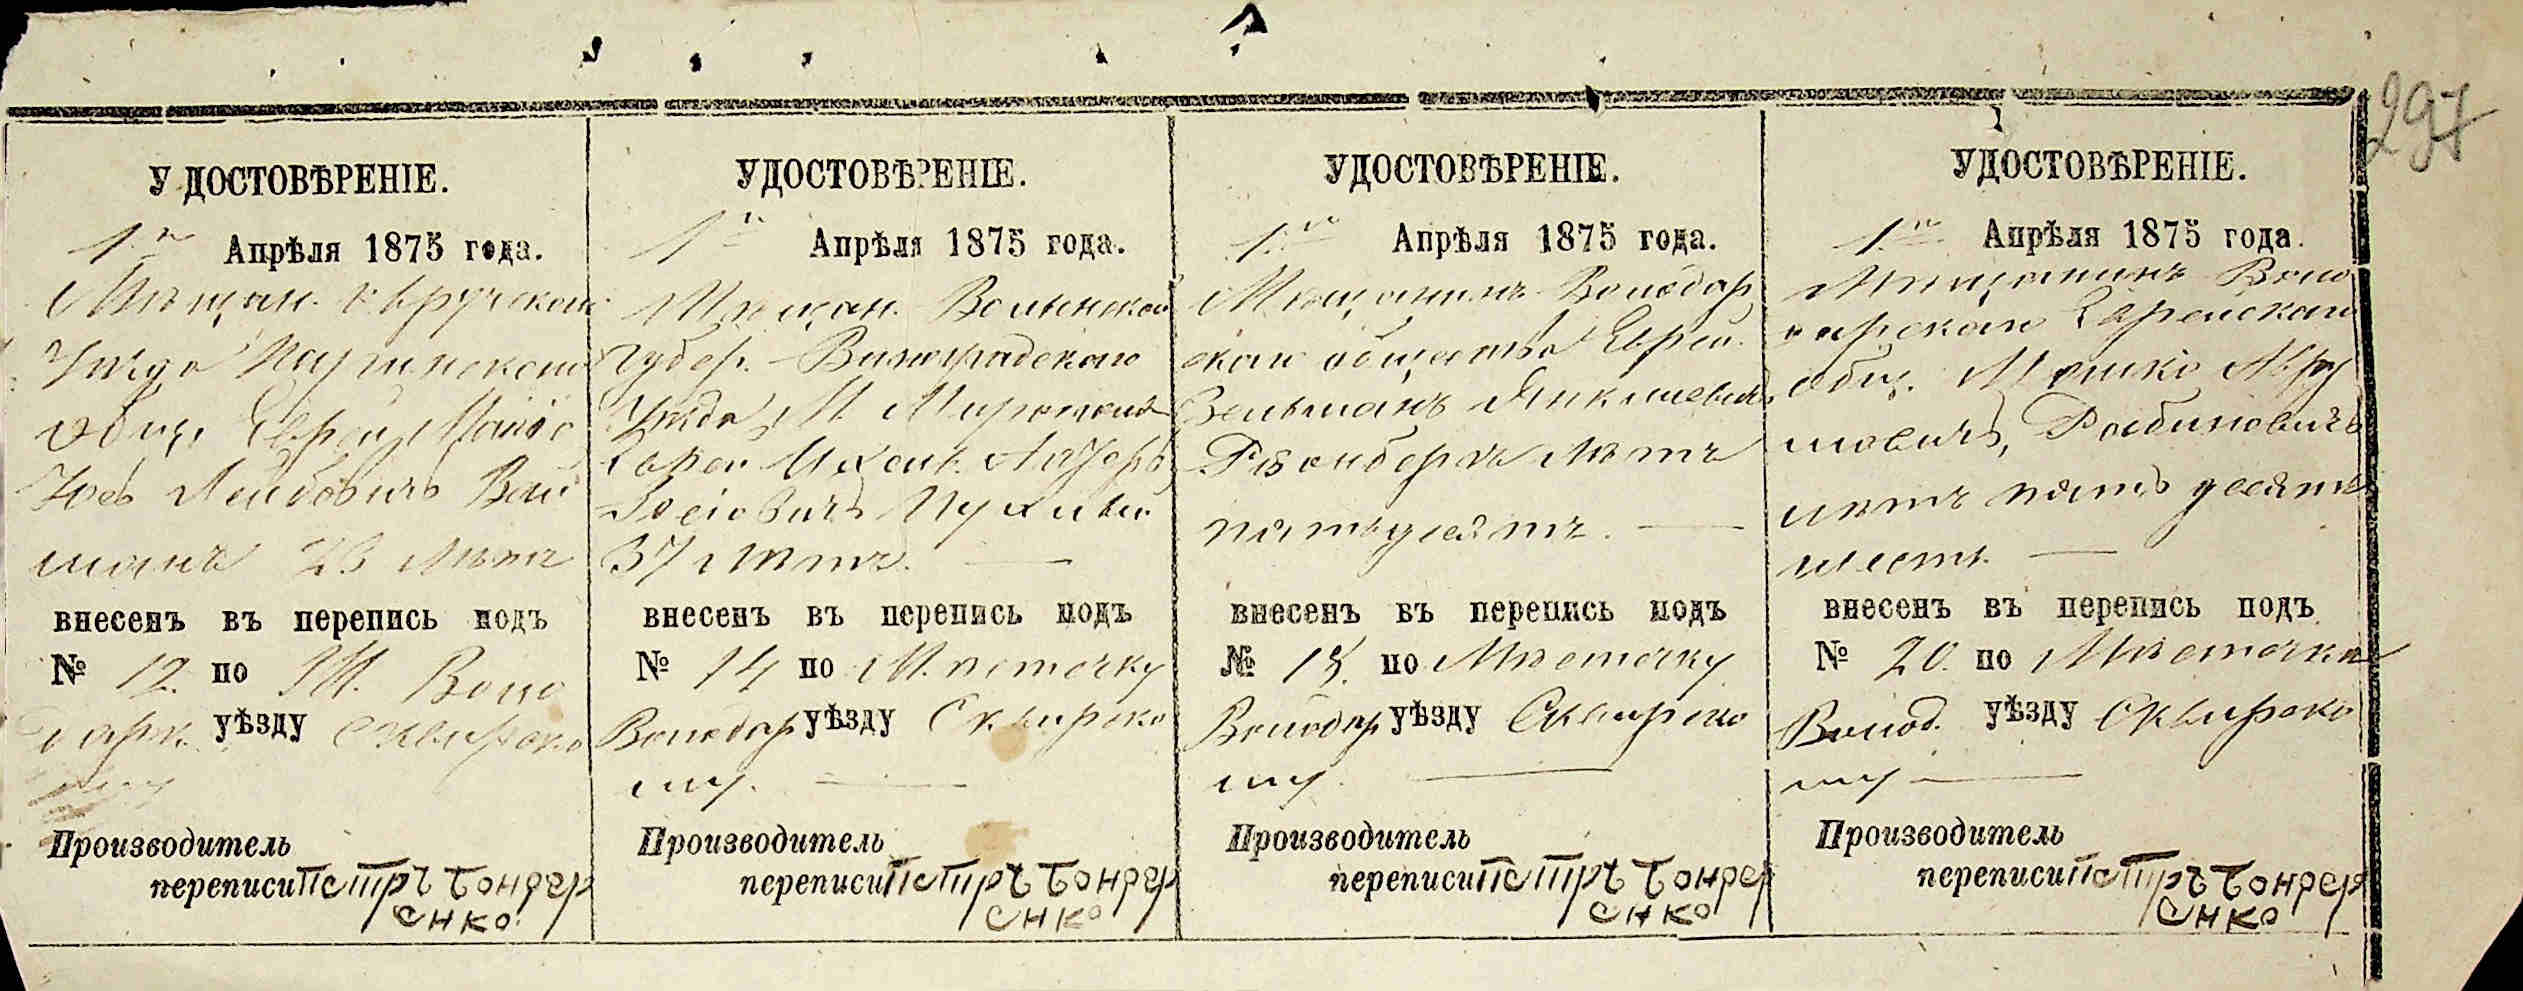 297
УДОСТОВѢРЕНІЕ.
1го Апрѣля 1875 года.
Мѣщан. Овручскаго
Уѣзда
Общ. Еврей
Лейбовичъ Вай
манъ 23 Лѣтъ
внесенъ въ перепись подъ
№ 12. по М. Воло
дарк. уѣзду Сквирско
му
Производитель
переписи Петръ Бондар
енко.
УДОСТОВѢРЕНІЕ.
1го Апрѣля 1875 года.
Мѣщан. Волынской
Губер.
Уѣзда М.
Еврей
Іосіовичъ
37 лѣтъ.
внесенъ въ перепись подъ
№ 14 по Мѣстечку
Володар уѣзду Сквирско
му.
Производитель
переписи Петръ Бондар
енко
УДОСТОВѢРЕНІЕ.
1го Апрѣля 1875 года.
Мѣщанинъ Володар
скаго общества Еврей.
Зельманъ Янкелевичъ
лѣтъ
пятьдесятъ.
внесенъ въ перепись подъ
№ 18. по Мѣстечку
Володар уѣзду Сквирско
му.
Производитель
переписи Петръ Бондар
енко
УДОСТОВѢРЕНІЕ.
1го Апрѣля 1875 года.
Мѣщанинъ Воло
дарскаго Еврейскаго
общ. Мошко Авру
мовичъ, Рабиновичъ
лѣтъ пять десятъ
шесть.
внесенъ въ перепись подъ
№ 20. по Мѣстечку
Волод. уѣзду Сквирско
му
Производитель
переписи Петръ Бондар
енко